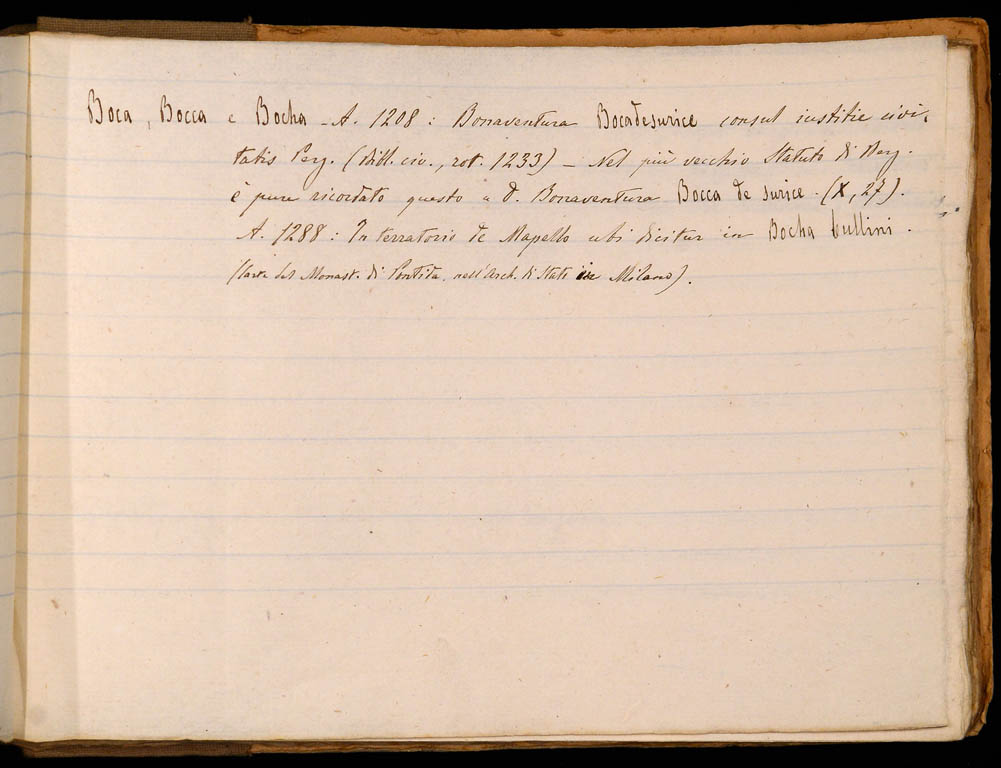 Boca, Bocca e Bocha - A. 1208 : Bonaventura Bocadesurice consul iustitie civi-
tatis Perg. (Bibl. civ., rot. 1233) - Nel più vecchio Statuto di Berg.
è pure ricordato questo d. Bonaventura Bocca de surice. (X, 27).
A. 1288 : In terratorio de Mapello ubi dicitur in Bocha Cullini.
(Carte del Monast. di Pontida, nell'Arch. di Stato in Milano).